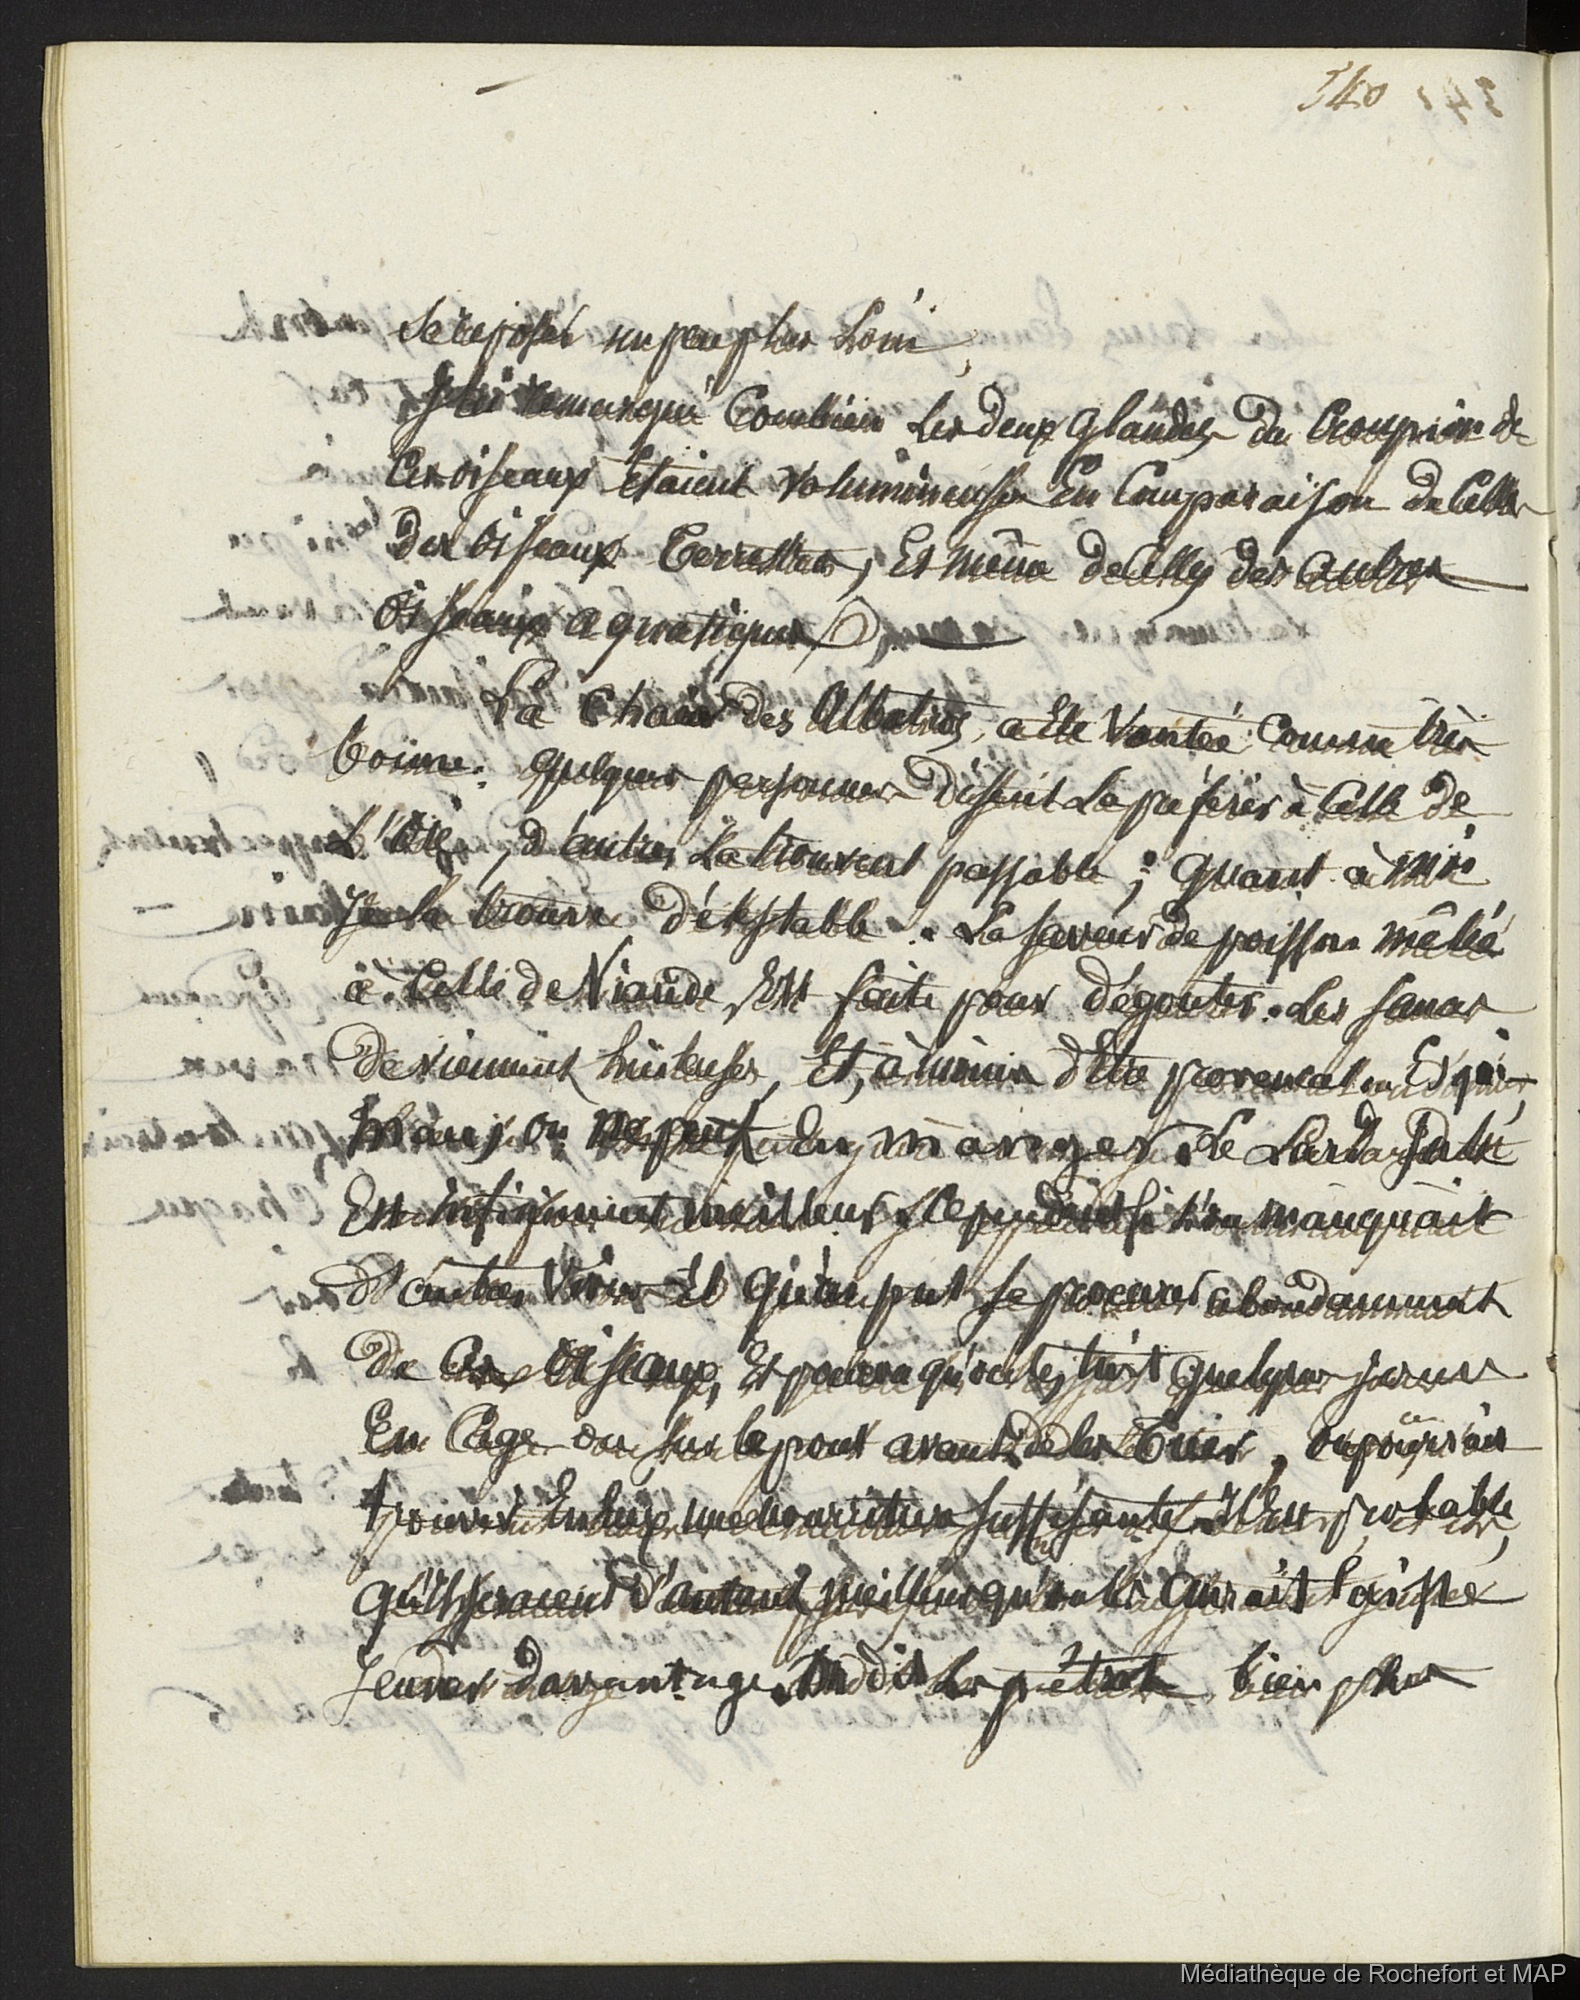 540
Se reposer un peu plus Loin
J'ai remarqué Combien Les deux glandes du Croupion de
Ces oiseaux Etaient volumineuses En Comparaison de Celles
Des oiseaux terrestres, Et même de Celles des autres
oiseaux aquatiques.
La Chair Des Albatros, a Ete Vantée Comme très
bonne. quelques personnes Disent La préférer à Celle de
L'oie, d'autres La trouvent passable; quant à moi
Je La trouve détestable. La saveur de poisson mêlée
à Celle de Viande Est faite pour dégouter. Les
Deviennent huileuses, Et, à moins d'Etre provencal ou Esquimau,
on ne peut En manger. Le Lard Salé
Est infiniment meilleur. Cependant si L'on manquait
D'autres Vivres Et qu'on put se procurer abondamment
De Ces oiseaux, Et pourvu qu'on les tint quelques jours
En Cage ou sur le pont avant de les Tuer, on pourrait
trouver En Eux une nourriture suffisante. Il Est probable
qu'ils seraient d'autant meilleurs qu'on les aurait Laissé
Jeuner davantage. On dit Les pétrels bien plus
Médiathèque de Rochefort et MAP